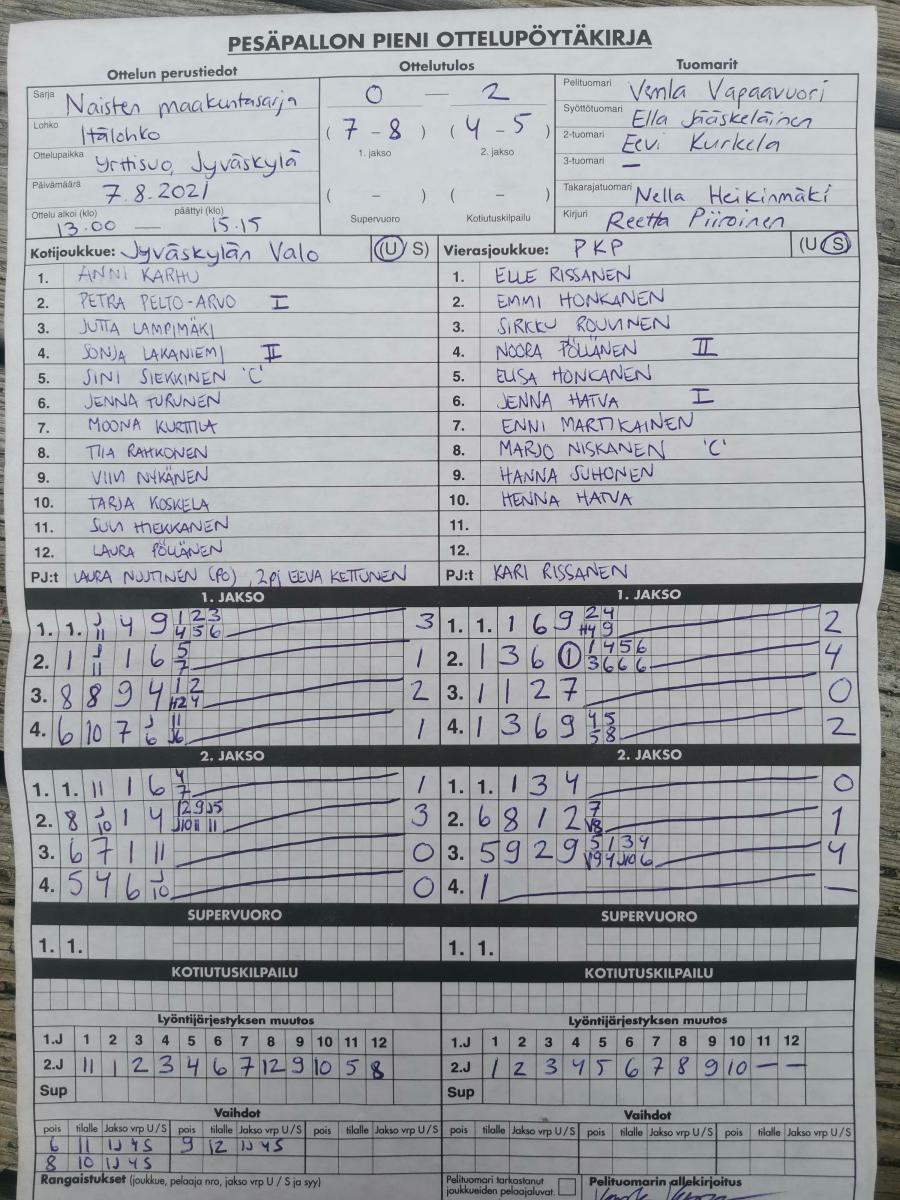 PESÄPALLON PIENI OTTELUPÖYTÄKIRJA
Ottelun perustiedot
Ottelutulos
Tuomarit
Sarja Naisten maakuntasarja
Lohko Itälohko
Ottelupaikka Yrttisuo, Jyväskylä
Päivämäärä 7.8.2021
Ottelu alkoi (klo) päättyi (klo)
13.00 — 15.15
0 — 2
(7 - 8) (4 - 5)
1. jakso 2. jakso
( - ) ( - )
Supervuoro Kotiutuskilpailu
Pelituomari Venla Vapaavuori
Syöttötuomari Ella Jääskeläinen
2-tuomari Eevi Kurkela
3-tuomari —
Takarajatuomari Nella Heikinmäki
Kirjuri Reetta Piiroinen
Kotijoukkue: Jyväskylän Valo (U/S)
1. ANNI KARHU
2. PETRA PELTO-ARVO I
3. JUTTA LAMPIMÄKI
4. SONJA LAKANIEMI II
5. SINI SIEKKINEN 'C'
6. JENNA TURUNEN
7. MOONA KURTTILA
8. TIIA RAHKONEN
9. VIIVI NYKÄNEN
10. TARJA KOSKELA
11. SUVI HIEKKANEN
12. LAURA PÖLLÄNEN
PJ:t LAURA NUUTINEN (PO), 2pj EEVA KETTUNEN
Vierasjoukkue: PKP (U/S)
1. ELLE RISSANEN
2. EMMI HONKANEN
3. SIRKKU ROUVINEN
4. NOORA PÖLLÄNEN II
5. ELISA HONKANEN
6. JENNA HATVA I
7. ENNI MARTIKAINEN
8. MARJO NISKANEN 'C'
9. HANNA SUHONEN
10. HENNA HATVA
11.
12.
PJ:t KARI RISSANEN
1. JAKSO
1. 1. J 11 4 9 1 2 3 4 5 6 3
2. 1 J 11 1 6 5 7 1
3. 8 8 9 4 1 2 H2 4 2
4. 6 10 7 J 6 11 J6 1
2. JAKSO
1. 1. 11 1 6 4 7 1
2. 8 J 10 1 4 12 9 J5 J10 11 11 3
3. 6 7 1 11 0
4. 5 4 6 J 10 0
SUPERVUORO
1. 1.
KOTIUTUSKILPAILU
1. JAKSO
1. 1. 1 6 9 2 4 H4 9 2
2. 1 3 6 1 1 4 5 6 3 6 6 6 4
3. 1 1 2 7 0
4. 1 3 6 9 4 5 5 8 2
2. JAKSO
1. 1. 1 3 4 0
2. 6 8 1 2 7 V8 1
3. 5 9 2 9 5 1 3 4 V9 4 J10 6 4
4. 1 —
SUPERVUORO
1. 1.
KOTIUTUSKILPAILU
Lyöntijärjestyksen muutos
1.J 1 2 3 4 5 6 7 8 9 10 11 12
2.J 11 1 2 3 4 6 7 12 9 10 5 8
Sup
Lyöntijärjestyksen muutos
1.J 1 2 3 4 5 6 7 8 9 10 11 12
2.J 1 2 3 4 5 6 7 8 9 10 — —
Sup
Vaihdot
pois tilalle Jakso vrp U/S pois tilalle Jakso vrp U/S pois tilalle
6 11 1J 4S 9 12 1J 4S
8 10 1J 4S
Vaihdot
pois tilalle Jakso vrp U/S pois tilalle Jakso vrp U/S pois tilalle
Rangaistukset (joukkue, pelaaja nro, jakso vrp U / S ja syy)
Pelituomari tarkastanut
joukkueiden pelaajaluvat.
Pelituomarin allekirjoitus